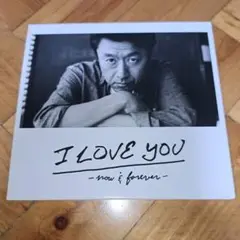 I LOVE YOU
-now & forever-